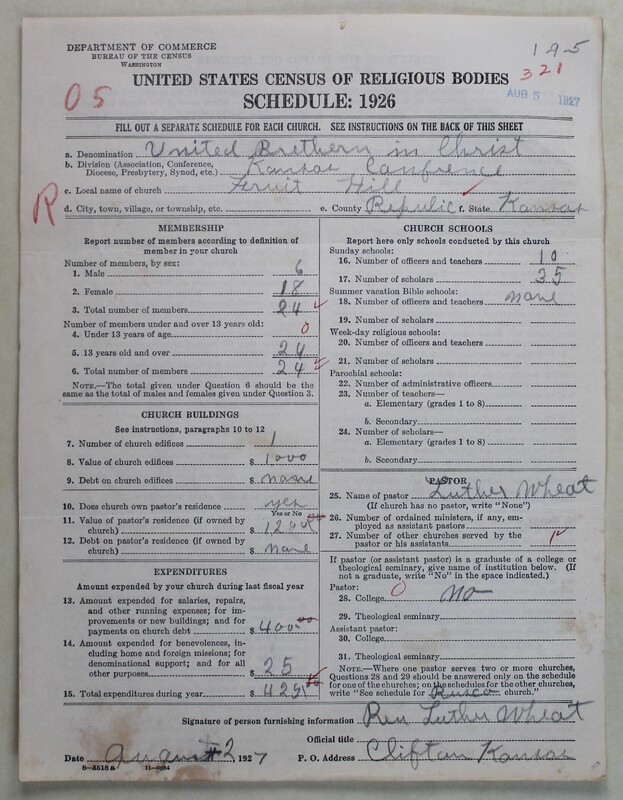 DEPARTMENT OF COMMERCE
BUREAU OF THE CENSUS
WASHINGTON
195
321
AUG 5 1927
05
UNITED STATES CENSUS OF RELIGIOUS BODIES
SCHEDULE: 1926
FILL OUT A SEPARATE SCHEDULE FOR EACH CHURCH. SEE INSTRUCTIONS ON THE BACK OF THIS SHEET
a. Denomination United Brethern in Christ
b. Division (Association, Conference, Diocese, Presbytery, Synod, etc.) Kansas Confrence
c. Local name of church Fruit Hill
R
d. City, town, village, or township, etc. e. County Republic f. State Kansas
MEMBERSHIP
Report number of members according to definition of
member in your church
Number of members, by sex:
1. Male 6
2. Female 18
3. Total number of members 24
Number of members under and over 13 years old:
4. Under 13 years of age 0
5. 13 years old and over 24
6. Total number of members 24
NOTE.—The total given under Question 6 should be the
same as the total of males and females given under Question 3.
CHURCH BUILDINGS
See instructions, paragraphs 10 to 12
7. Number of church edifices 1
8. Value of church edifices $ 1000
9. Debt on church edifices $ none
10. Does church own pastor's residence yes
Yes or No
11. Value of pastor's residence (if owned by
church) $ 1200 00
12. Debt on pastor's residence (if owned by
church) $ none
EXPENDITURES
Amount expended by your church during last fiscal year
13. Amount expended for salaries, repairs,
and other running expenses; for im-
provements or new buildings; and for
payments on church debt $ 400 00
14. Amount expended for benevolences, in-
cluding home and foreign missions; for
denominational support; and for all
other purposes $ 25
15. Total expenditures during year $ 425 00
CHURCH SCHOOLS
Report here only schools conducted by this church
Sunday schools:
16. Number of officers and teachers 10
17. Number of scholars 35
Summer vacation Bible schools:
18. Number of officers and teachers none
19. Number of scholars
Week-day religious schools:
20. Number of officers and teachers
21. Number of scholars
Parochial schools:
22. Number of administrative officers
23. Number of teachers—
a. Elementary (grades 1 to 8)
b. Secondary
24. Number of scholars—
a. Elementary (grades 1 to 8)
b. Secondary
PASTOR
25. Name of pastor Luther Wheat
(If church has no pastor, write "None")
26. Number of ordained ministers, if any, em-
ployed as assistant pastors
27. Number of other churches served by the
pastor or his assistants
If pastor (or assistant pastor) is a graduate of a college or
theological seminary, give name of institution below. (If
not a graduate, write "No" in the space indicated.)
Pastor:
28. College 0 no
29. Theological seminary
Assistant pastor:
30. College
31. Theological seminary
NOTE.—Where one pastor serves two or more churches,
Questions 28 and 29 should be answered only on the schedule
for one of the churches; on the schedules for the other churches,
write "See schedule for church."
Signature of person furnishing information Rev Luther Wheat
Official title
Date August 2 1927 P. O. Address Clifton Kansas
8—5518a 11—9034